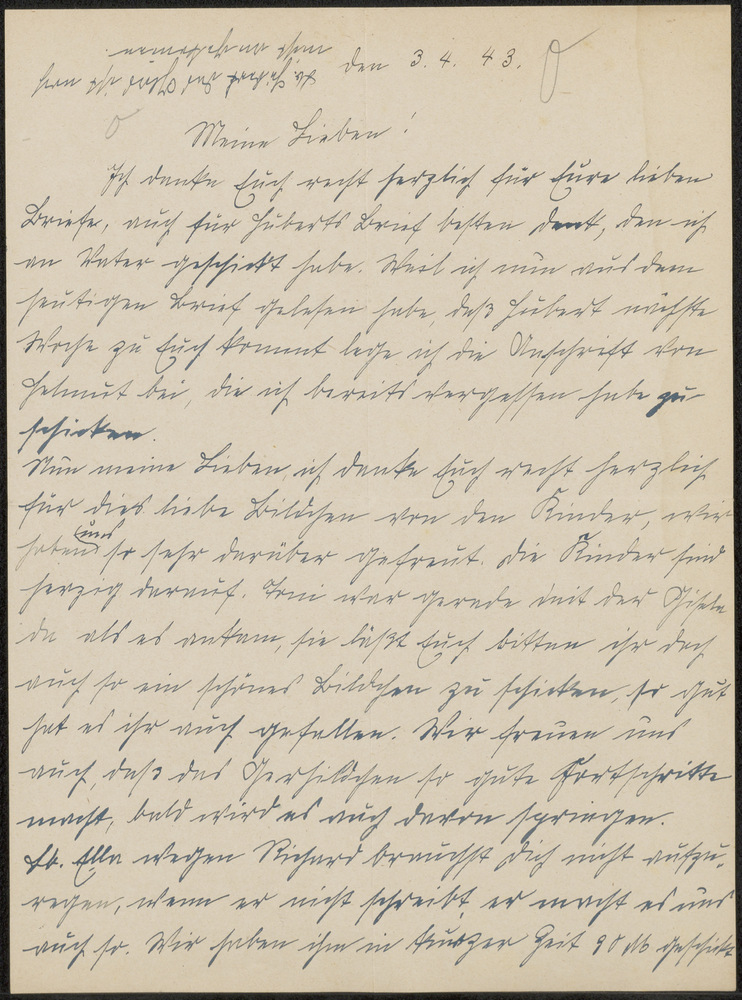 den 3. 4. 43.
Meine Lieben!
Ich danke Euch recht herzlich für Eure lieben
Briefe, auch für Huberts Brief besten Dank, den ich
an Vater geschickt habe. Weil ich nun aus dem
heutigen Brief gelesen habe, daß Hubert nächste
Woche zu Euch kommt lege ich die Anschrift von
Helmut bei, die ich bereits vergessen habe zu
schicken.
Nun meine Lieben, ich danke Euch recht herzlich
für dies liebe Bildchen von den Kinder, wir
haben uns so sehr darüber gefreut. Die Kinder sind
herzig darauf. Toni war gerade mit der Gisela
da als es ankam, sie läßt Euch bitten ihr doch
auch so ein schönes Bildchen zu schicken, so gut
hat es ihr auch gefallen. Wir freuen uns
auch, daß das Gerhildchen so gute Fortschritte
macht, bald wird es auch davon springen.
Lb. Ella wegen Richard brauchst Dich nicht aufzu-
regen, wenn er nicht schreibt, er macht es uns
auch so. Wir haben ihm in kurzer Zeit 90 M geschickt